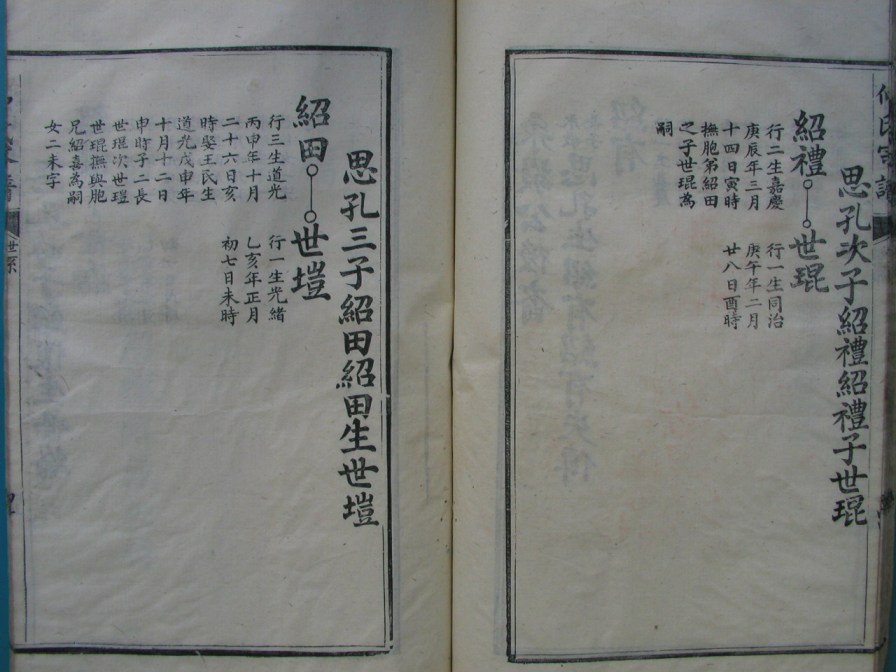 思孔次子紹禮紹禮子世琨
紹禮
世琨
行二生嘉慶
庚辰年三月
十四日寅時
撫胞弟紹田
之子世琨為
嗣
行一生同治
庚午年二月
廿八日酉時
思孔三子紹田紹田生世塏
紹田
世塏
行三生道光
丙申年十月
二十六日亥
時娶王氏生
道光戊申年
十月十二日
申時子二長
世琨次世塏
世琨撫與胞
兄紹喜為嗣
女二未字
行一生光緒
乙亥年正月
初七日未時
世系